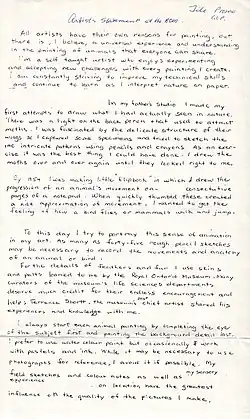 Artists Statement
All artists have their own reasons for painting, but
there is, I believe, a universal experience and understanding
in the painting of animals that everyone can share.
I'm a self taught artist who enjoys experimenting
and accepting new challenges with every painting I create.
I am constantly striving to improve my technical skills
and continue to learn as I interpret nature on paper.
In my father's studio I made my
first attempts to draw what I had actually seen in nature.
There was a light on the back porch that used to attract
moths. I was fascinated by the delicate structure of their
wings so I captured some specimens and tried to sketch the
intricate patterns using pencils and crayons. As an exer-
cise it was the best thing I could have done. I drew the
moths over and over again until they looked right to me.
By I was making little "flipbooks" in which I drew the
progression of an animal's movement on consecutive
pages of a notepad. When quickly thumbed these created
a net approximation of movement. I wanted to get the
feeling of how a bird flies or mammals walk and jump.
To this day I try to portray this sense of animation
in my art. As many as forty-five rough pencil sketches
may be necessary to record the movements and anatomy
of an animal or bird.
For the details of feathers and fur I use skins
and pelts loaned to me by the Royal Ontario Museum. Many
curators of the museum's life sciences departments
deserve much credit for their endless encouragement and
help. Terence Shortt, the museum's chief artist shared his
experiences and knowledge with me.
I always start each animal painting by completing the eye
of the subject first and painting the background detail last.
I prefer to use water colour paint but occasionally I work
with pastels and inks. While it may be necessary to use
photographs for reference, I avoid it if possible. My
field sketches and colour notes as well as my sensory
experience on location have the greatest
influence on the quality of the pictures I make.